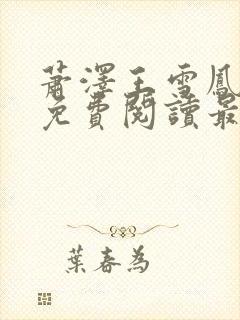 蕭澤王雪鳳
免費閱讀最
葉春為